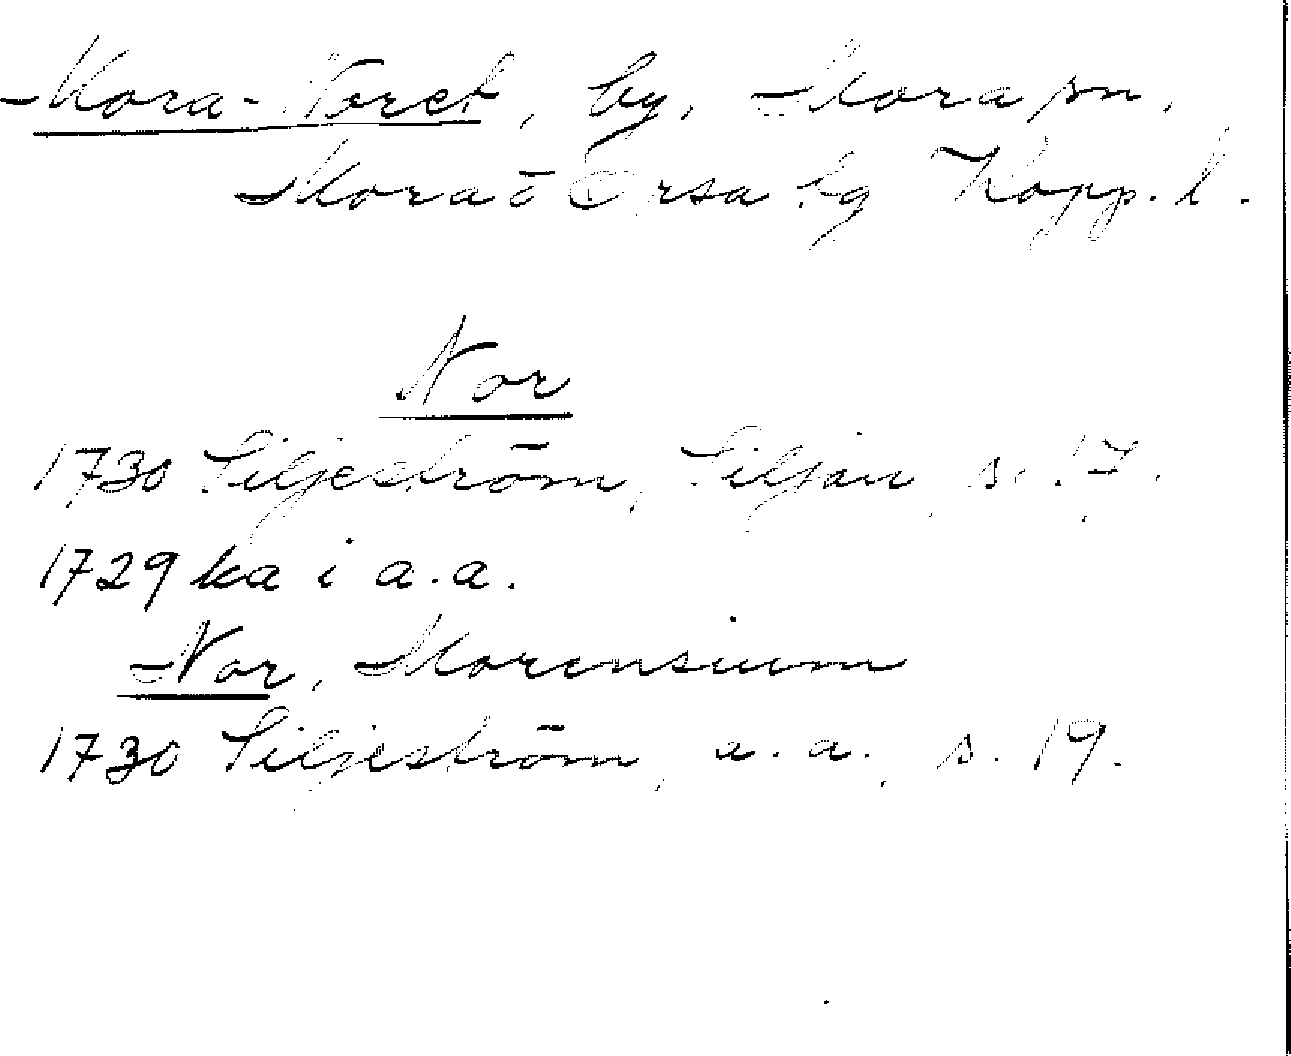 Mora-Noret, by, Mora sn,
Mora o Orsa tg Kopp. l.
Nor
1730 Siljeström, Siljan, s. 17.
1729 ka i a.a.
Nor, Morensium
1730 Siljeström, a.a., s. 19.